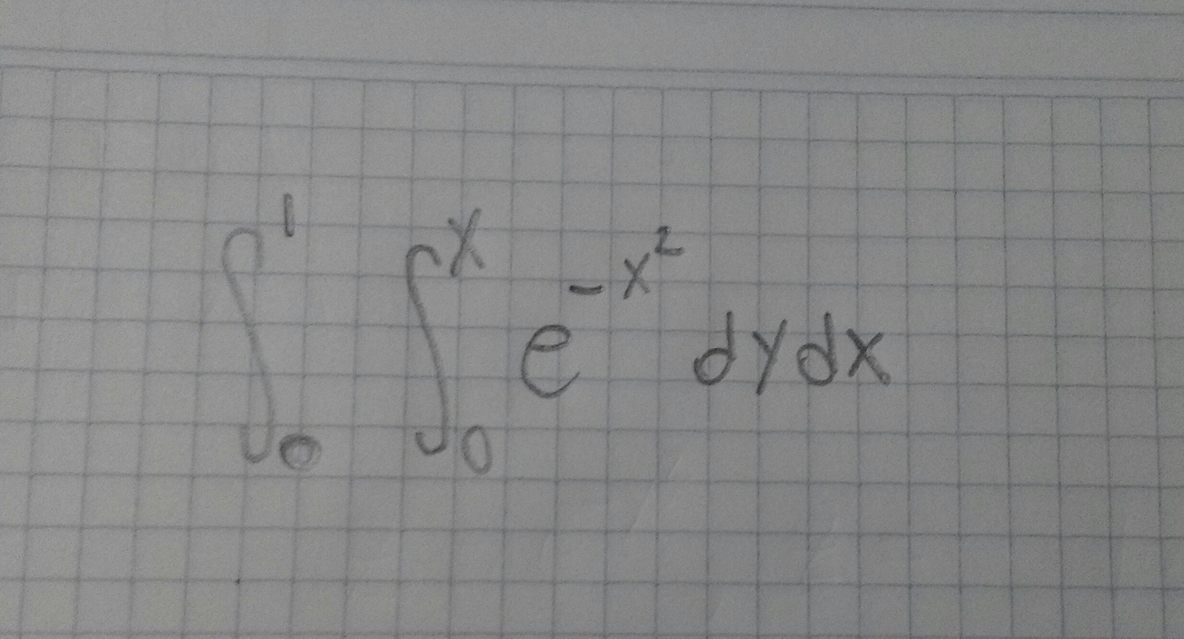 ∫₀¹ ∫₀ˣ e^{-x²} dy dx